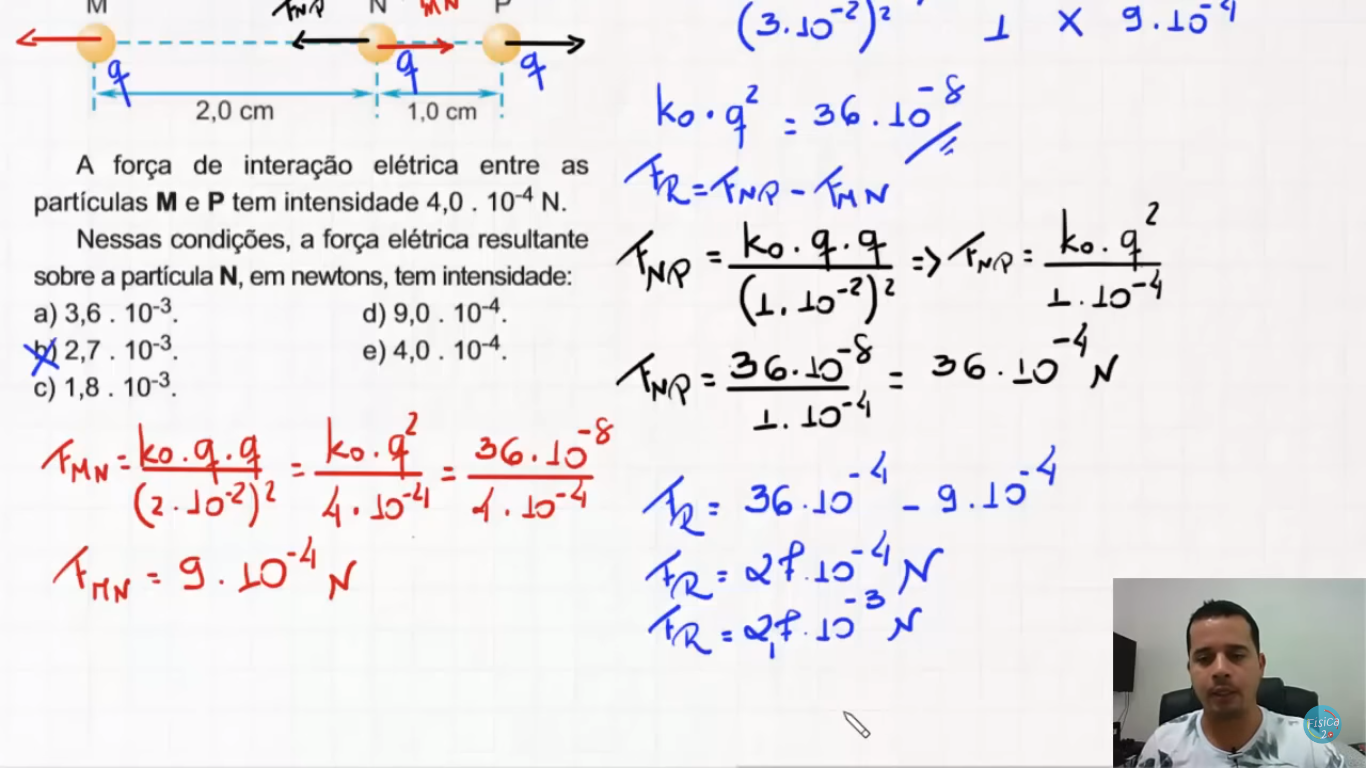 M N P
F_NP MN
q q q
2,0 cm 1,0 cm
A força de interação elétrica entre as
partículas M e P tem intensidade 4,0 . 10⁻⁴ N.
Nessas condições, a força elétrica resultante
sobre a partícula N, em newtons, tem intensidade:
a) 3,6 . 10⁻³. d) 9,0 . 10⁻⁴.
b) 2,7 . 10⁻³. e) 4,0 . 10⁻⁴.
c) 1,8 . 10⁻³.
F_MN = k₀.q.q / (2.10⁻²)² = k₀.q² / 4.10⁻⁴ = 36.10⁻⁸ / 4.10⁻⁴
F_MN = 9.10⁻⁴ N
(3.10⁻²)² 1 X 9.10⁻⁴
k₀.q² = 36.10⁻⁸
F_R = F_NP - F_MN
F_NP = k₀.q.q / (1.10⁻²)² => F_NP = k₀.q² / 1.10⁻⁴
F_NP = 36.10⁻⁸ / 1.10⁻⁴ = 36.10⁻⁴ N
F_R = 36.10⁻⁴ - 9.10⁻⁴
F_R = 27.10⁻⁴ N
F_R = 2,7.10⁻³ N
Física
2.0